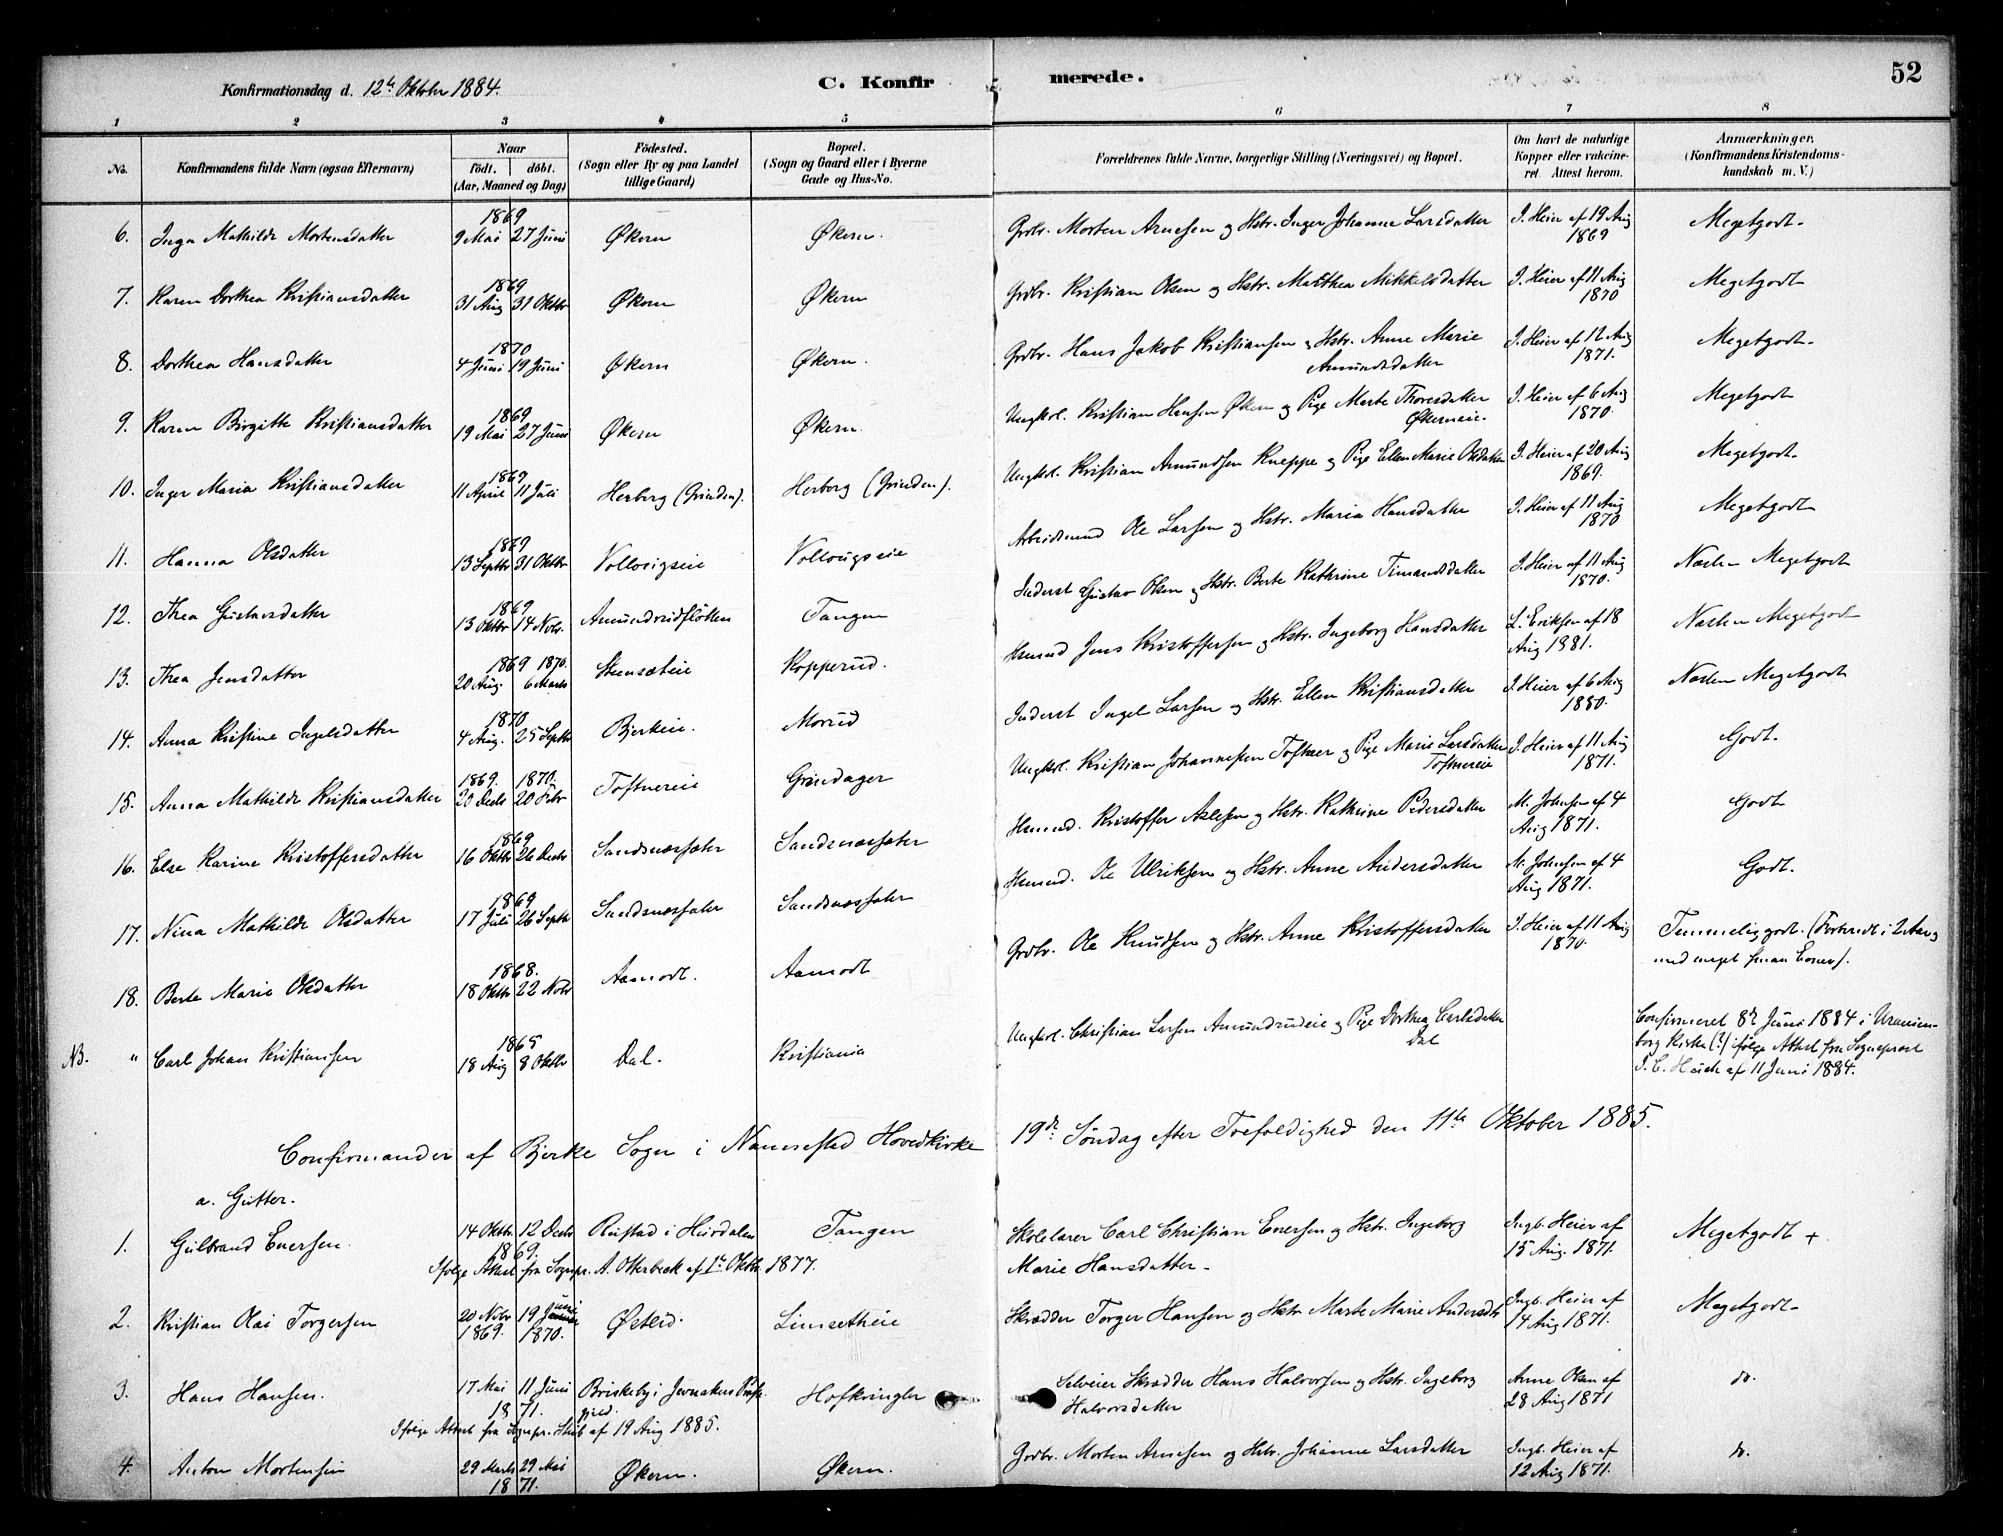 Konfirmationsdag d. 12te Oktober 1884.
C. Konfirmerede.
52
1 2 3 4 5 6 7 8
No. Konfirmandens fulde Navn (ogsaa Efternavn) Naar födt. döbt. (Aar, Maaned og Dag) Födested. (Sogn eller By og paa Landet tillige Gaard) Bopæl. (Sogn og Gaard eller i Byerne Gade og Hus-No. Forældrenes fulde Navne, borgerlige Stilling (Næringsvei) og Bopæl. Om havt de naturlige Kopper eller vakcineret. Attest herom. Anmærkninger, (Konfirmandens Kristendomskundskab m. V.)
6. Inga Mathilde Mortensdatter 1869 9 Mai 27 Juni Økern Økern. Grdbr. Morten Arnesen og Hstr. Inger Johanne Larsdatter I. Heier af 19 Aug 1869 Megetgodt.
7. Karen Dorthea Kristiansdatter 1869 31 Aug 31 Oktbr Økern Økern Grdbr. Kristian Olsen og Hstr. Mathea Mikkelsdatter I. Heier af 11 Aug 1870 Megetgodt
8. Dorthea Hansdatter 1870 4 Juni 19 Juni Økern Økern. Grdbr. Hans Jakob Kristiansen og Hstr. Anne Marie Amundsdatter I. Heier af 12 Aug 1871. Megetgodt.
9. Karen Birgitte Kristiansdatter 1869 19 Mai 27 Juni Økern Økern. Ungkrl. Kristian Hansen Økern og Pige Marte Thoresdatter Økerneie. I. Heier af 6 Aug 1870. Megetgodt
10. Inger Maria Kristiansdatter 1869 11 April 11 Juli Herberg (Grinden). Herberg (Grinden). Ungkrl. Kristian Amundsen Kneppe og Pige Ellen Marie Olsdatter I. Heier af 20 Aug 1869. Megetgodt.
11. Hanna Olsdatter 1869 13 Septbr 31 Oktbr Vollaugseie Vollaugseie Arbeidsmand Ole Larsen og Hstr. Maria Hansdatter I. Heier af 11 Aug 1870 Megetgodt
12. Thea Gustavsdatter 1869 13 Oktbr 14 Nvbr. Amundrudfløtten Tangen Inderst Gustav Olsen og Hstr. Berte Kathrine Timandsdatter I. Heier af 11 Aug 1870. Næsten Megetgodt
13. Thea Jensdatter 1869 1870. 20 Aug. 6 Marts Steensæteie Kopperud. Hsmnd Jens Kristoffersen og Hstr. Ingeborg Hansdatter L. Eriksen af 18 Aug 1881. Næsten Megetgodt
14. Anna Kristine Ingelsdatter 1870 4 Aug. 25 Septbr Bjerkeie. Morud Inderst Ingel Larsen og Hstr. Ellen Kristiansdatter I. Heier af 6 Aug 1880. Næsten Megetgodt
15. Anna Mathilde Kristiansdatter 1869. 1870. 20 Decbr 20 Febr Toftnereie Grindager Ungkrl. Kristian Johannesen Toftner og Pige Marie Larsdatter Toftnereie I. Heier af 11 Aug 1871. Godt.
16. Else Karine Kristoffersdatter 1869 16 Oktbr 26 Decbr Sandsnæssæter Sandsnæssæter Hsmnd. Kristoffer Aslesen og Hstr. Kathrine Pedersdatter M. Johnsen af 4 Aug 1871. Godt
17. Nina Mathilde Olsdatter 1869 17 Juli 26 Septbr Sandsnæssæter Sandsnæssæter Hsmnd. Ole Ulriksen og Hstr. Anne Andersdatter M. Johnsen af 4 Aug 1871. Godt.
18. Berte Marie Olsdatter 1868. 18 Oktbr 22 Nvbr Aamodt. Aamodt Grdbr. Ole Knudsen og Hstr. Anne Kristoffersdatter I. Heier af 11 Aug 1870. Temmeliggodt. (Forberedt i 2 Aar og med meget smaa Evner).
NB. " Carl Johan Kristiansen 1865 18 Aug 8 Oktbr Dal. Kristiania Ungkrl. Christian Larsen Amundrudeie og Pige Dorthea Carlsdatter Dal Confirmeret 8de Juni 1884 i Uranienborg Kirke (?) ifølge Attest fra Sognepræst J. C. Heuch af 11 Juni 1884.
Confirmander af Bjerke Sogn i Nannestad Hovedkirke 19de Søndag efter Trefoldighed den 11te Oktober 1885.
a. Gutter.
1. Gulbrand Enersen. 14 Oktbr. 12 Decbr 1869. Rustad i Hurdalen Tangen Skolelærer Carl Christian Enersen og Hstr. Ingeborg Marie Hansdatter. Ingb. Heier af 15 Aug. 1871. Megetgodt +
Ifølge Attest fra Sognepr. A. Otterbeck af 1te Oktbr. 1877.
2. Kristian Olai Torgersen 20 Nvbr 1869. 19 Juni 1870. Østlid. Limsetheie Skrædder Torger Hansen og Hstr Marte Marie Andersdtr Ingb. Heier af 14 Aug 1871. Megetgodt.
3. Hans Hansen. 17 Mai 11 Juni 1871. Briskeby i Jevnakers Præstegjeld. Hofkvingler Selveier Skrædder Hans Halvorsen og Hstr. Ingeborg Halvorsdatter Anne Olsen af 28 Aug 1871 do.
Ifølge Attest fra Sognepr. af 19 Aug 1885.
4. Anton Mortensen 29 Marts 29 Mai 1871. Økern. Økern. Grdbr. Morten Arnesen og Hstr. Johanne Larsdatter Ingb. Heier af 12 Aug 1871. do.